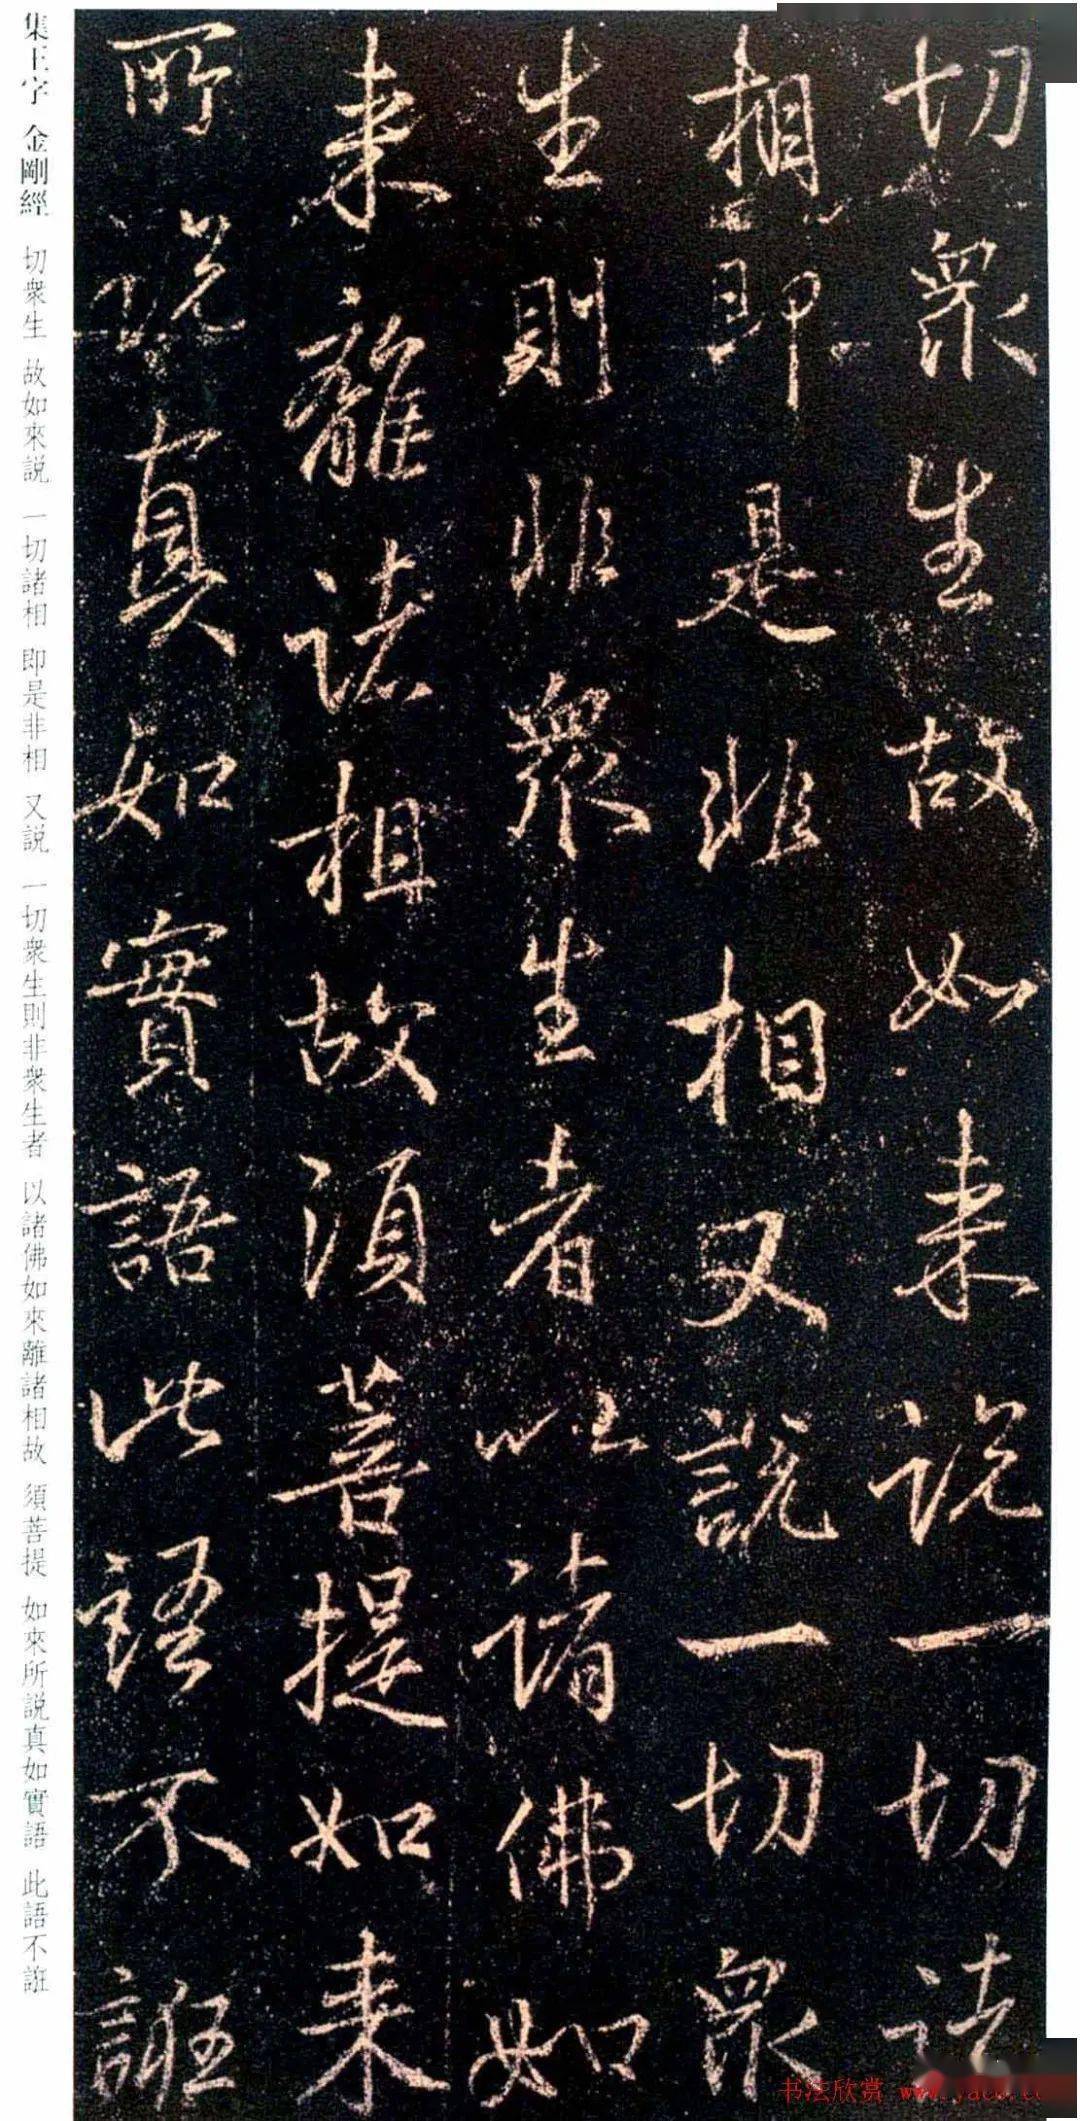 切衆生故如来説一切諸
相即是非相又説一切衆
生則非衆生者以諸佛如
来離諸相故須菩提如来
所説真如實語此語不誑
集王字 金剛經 切衆生 故如來説 一切諸相 即是非相 又説 一切衆生則非衆生者 以諸佛如來離諸相故 須菩提 如來所説真如實語 此語不誑
书法欣赏